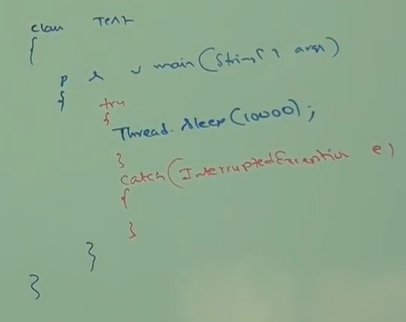 class Test
{
p s v main(String[] args)
{
try
{
Thread.sleep(10000);
}
catch(InterruptedException e)
{
}
}
}